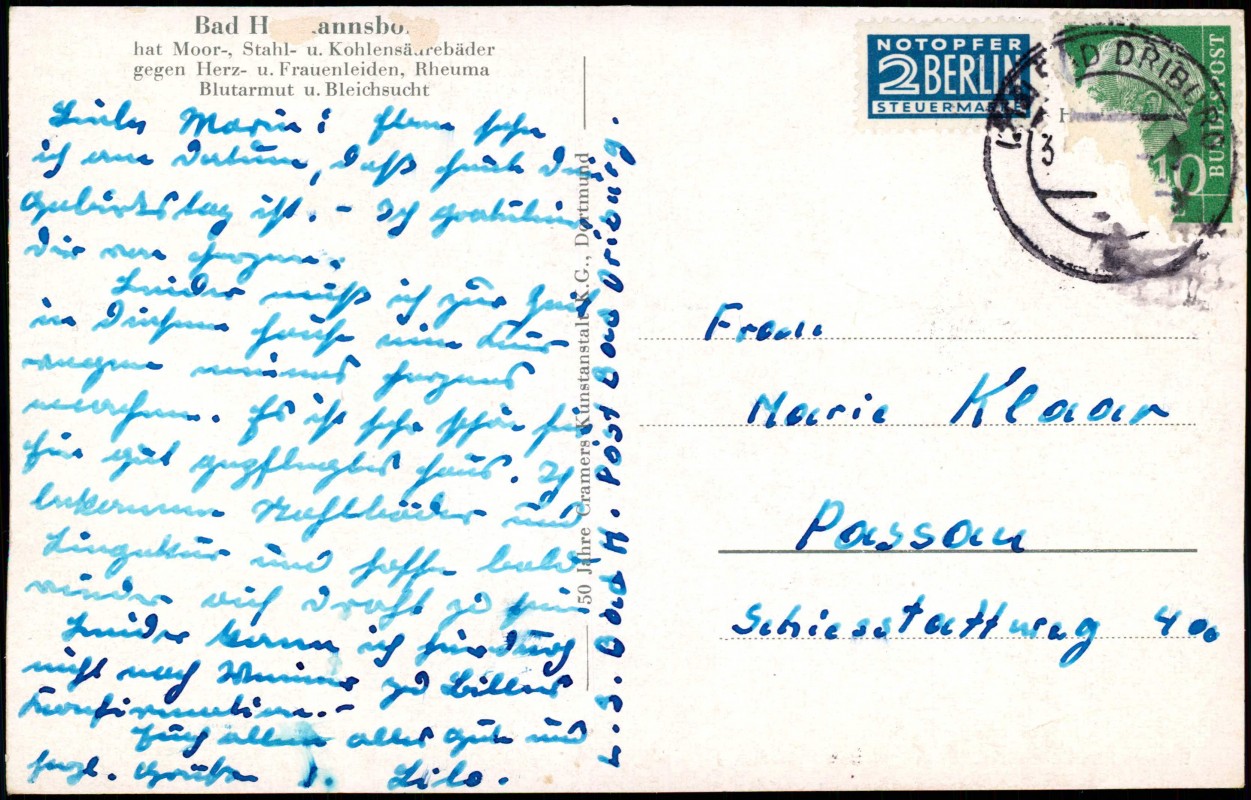 Bad H annsbo
hat Moor-, Stahl- u. Kohlensäurebäder
gegen Herz- u. Frauenleiden, Rheuma
Blutarmut u. Bleichsucht
Liebe Marie! Eben sehe
ich am Datum, daß heute Dein
Geburtstag ist. - Ich gratuliere
Dir von Herzen.
Leider muß ich zur Zeit
in diesem Hause eine Kur
wegen meines Herzens
machen. Es ist sehr schön hier
Ein gut gepflegtes Haus. Ich
bekomme Stahlbäder und
Liegekur und hoffe bald
wieder auf Draht zu sein
Leider kann ich hierdurch
nicht nach Weimar zu
Konfirmation. -
Euch allen alles Gute und
herzl. Grüße Lilo.
50 Jahre Cramers Kunstanstalt K.G., Dortmund
Bad H. Post Bad Driburg.
NOTOPFER
2 BERLIN
STEUERMARKE
BAD DRIBURG
3
10
BUNDESPOST
H
Frau
Marie Klaar
Passau
Schiesstattweg 40